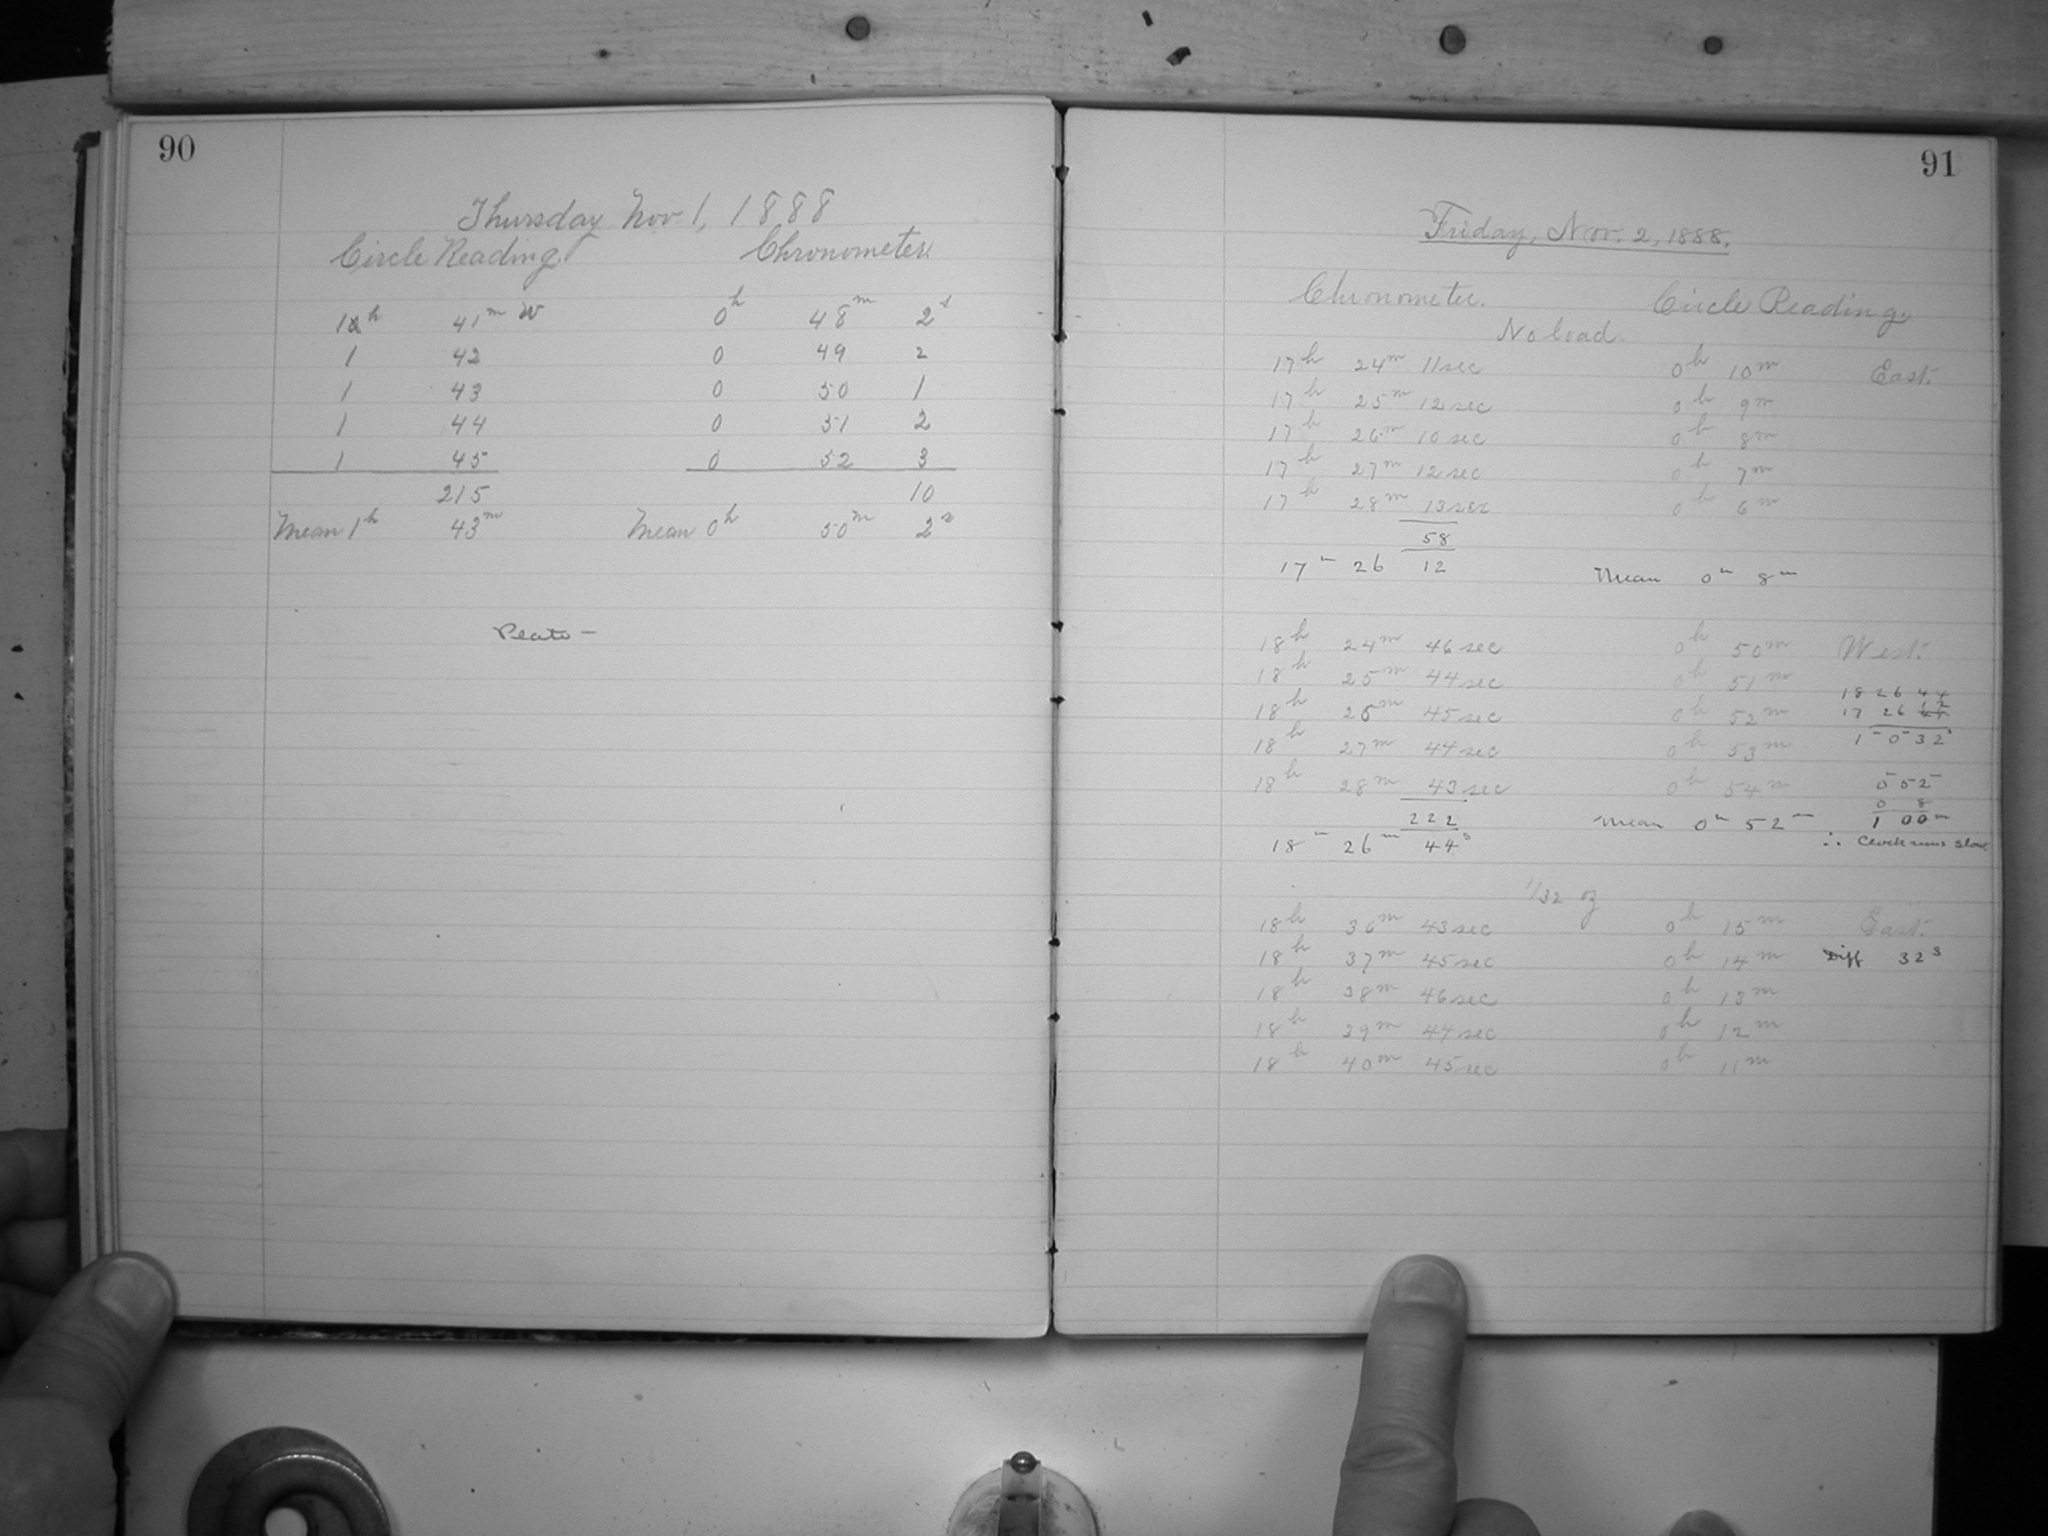 90
Thursday Nov. 1, 1888
Circle Reading. Chronometer.
1h 41m W 0h 48m 2s
1 42 0 49 2
1 43 0 50 1
1 44 0 51 2
1 45 0 52 3
215 10
Mean 1h 43m Mean 0h 50m 2s
91
Friday, Nov. 2, 1888.
Chronometer. Circle Reading.
No load.
17h 24m 11sec 0h 10m East.
17h 25m 12sec 0h 9m
17h 26m 10sec 0h 8m
17h 27m 12sec 0h 7m
17h 28m 13sec 0h 6m
58
17h 26 12 Mean 0h 8m
18h 24m 46sec 0h 50m West.
18h 25m 44sec 0h 51m
18 26 44
18h 26m 45sec 0h 52m 17 26 12
18h 27m 44sec 0h 53m 1h 0m 32s
18h 28m 43sec 0h 54m 0h 52m
0 8
222 Mean 0h 52m 1 00m
18h 26m 44s ∴ Clock runs slow.
1/32 oz
18h 36m 43sec 0h 15m East.
18h 37m 45sec 0h 14m Diff 32s
18h 38m 46sec 0h 13m
18h 39m 44sec 0h 12m
18h 40m 45sec 0h 11m